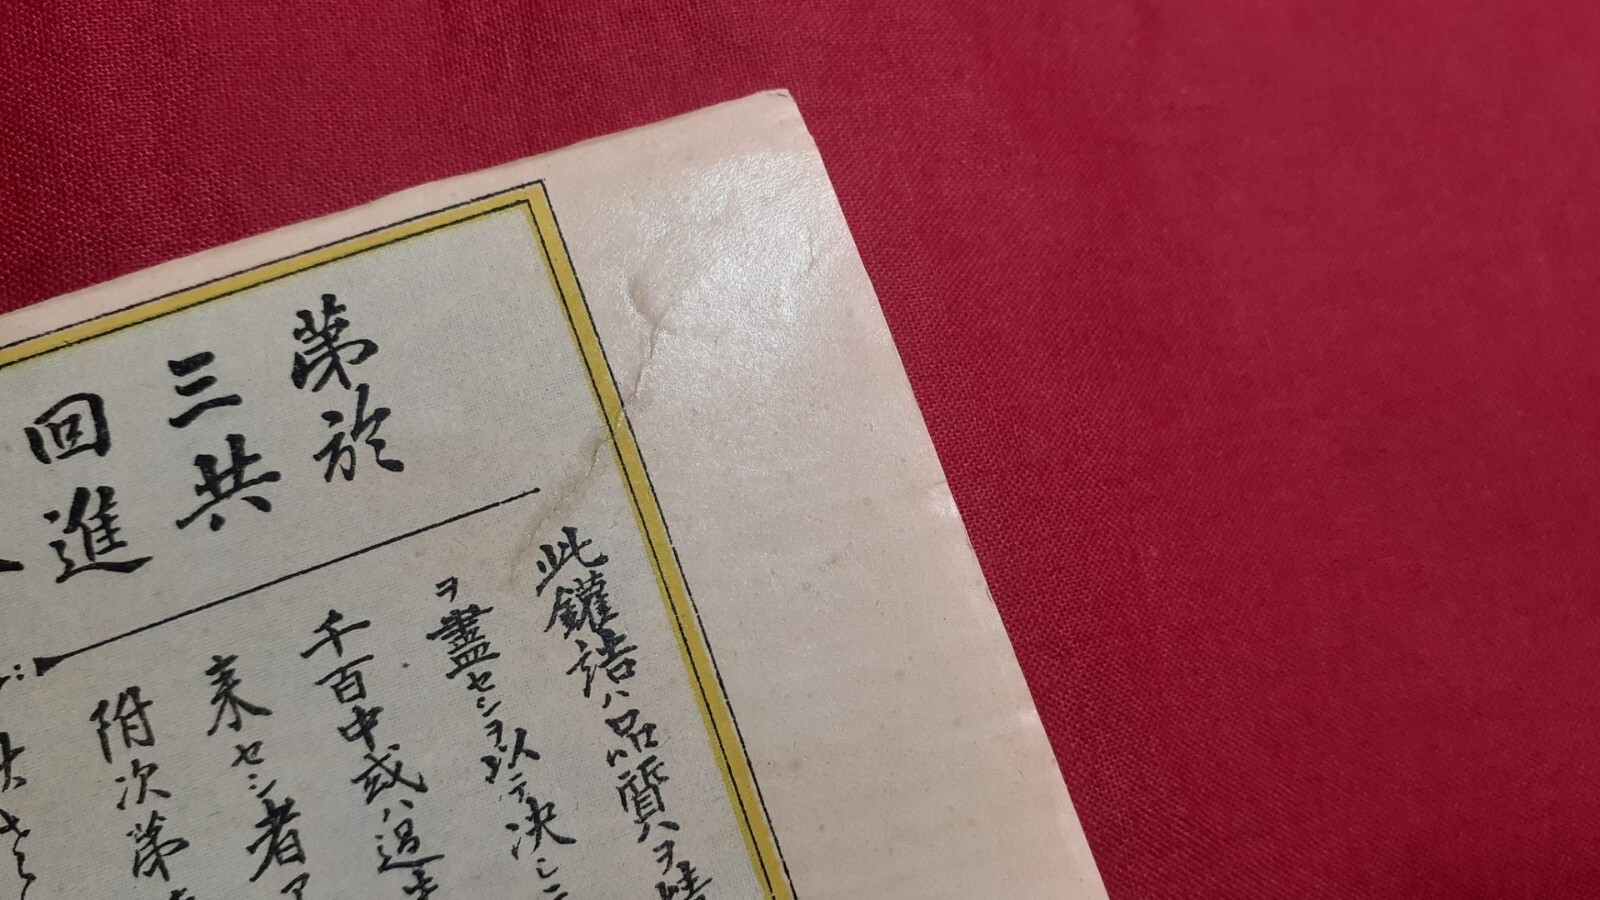 第三回
於共進
此鑵詰ハ品質ハヲ
ヲ盡セシヲ以テ決シ
千百中或ハ過
来セシ者ア
附次第